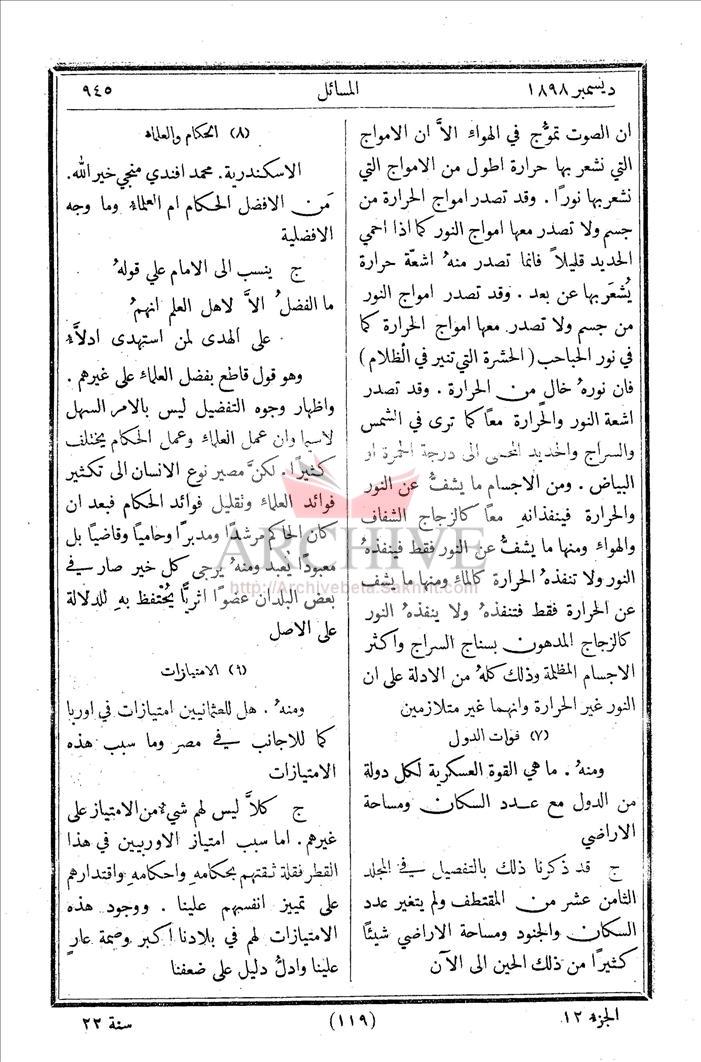 ديسمبر ١٨٩٨
المسائل
٩٤٥
ان الصوت تموُّج في الهواء الاَّ ان الامواج
التي نشعر بها حرارة اطول من الامواج التي
نشعر بها نورًا . وقد تصدر امواج الحرارة من
جسم ولا تصدر معها امواج النور كما اذا احمي
الحديد قليلاً فانما تصدر منهُ اشعَّة حرارة
يُشعَر بها عن بعد . وقد تصدر امواج النور
من جسم ولا تصدر معها امواج الحرارة كما
في نور الحباحب (الحشرة التي تنير في الظلام)
فان نورهُ خال من الحرارة . وقد تصدر
اشعة النور والحرارة معًا كما ترى في الشمس
والسراج والحديد المحمى الى درجة الحمرة او
البياض . ومن الاجسام ما يشفُّ عن النور
والحرارة فينفذانهِ معًا كالزجاج الشفاف
والهواء ومنها ما يشفُّ عن النور فقط فينفذهُ
النور ولا تنفذهُ الحرارة كالماء ومنها ما يشف
عن الحرارة فقط فتنفذهُ ولا ينفذهُ النور
كالزجاج المدهون بسناج السراج واكثر
الاجسام المظلمة وذلك كلهُ من الادلة على ان
النور غير الحرارة وانهما غير متلازمين
(٧) قوات الدول
ومنهُ . ما هي القوة العسكرية لكل دولة
من الدول مع عدد السكان ومساحة
الاراضي
ج قد ذكرنا ذلك بالتفصيل في المجلد
الثامن عشر من المقتطف ولم يتغير عدد
السكان والجنود ومساحة الاراضي شيئًا
كثيرًا من ذلك الحين الى الآن
(٨) الحكام والعلماء
الاسكندرية . محمد افندي منجي خير الله .
مَن الافضل الحكام ام العلماء وما وجه
الافضلية
ج ينسب الى الامام علي قولهُ
ما الفضلُ الاَّ لاهل العلم انهمُ
على الهدى لمن استهدى ادلاَّءُ
وهو قول قاطع بفضل العلماء على غيرهم .
واظهار وجوه التفضيل ليس بالامر السهل
لاسيما وان عمل العلماء وعمل الحكام يختلف
كثيرًا . لكنَّ مصير نوع الانسان الى تكثير
فوائد العلماء وتقليل فوائد الحكام فبعد ان
كان الحاكم مرشدًا ومدبرًا وحاميًا وقاضيًا بل
معبودًا يُعبد ومنهُ يرجى كل خير صار في
بعض البلدان عضوًا اثريًّا يُحْتفظ بهِ للدلالة
على الاصل
(٩) الامتيازات
ومنهُ . هل للعثمانيين امتيازات في اوربا
كما للاجانب في مصر وما سبب هذه
الامتيازات
ج كلاَّ ليس لهم شيءٌ من الامتياز على
غيرهم . اما سبب امتياز الاوربيين في هذا
القطر فقلة ثقتهم بحكامهِ واحكامهِ واقتدارهم
على تمييز انفسهم علينا . ووجود هذه
الامتيازات لهم في بلادنا اكبر وصمة عارٍ
علينا وادلُّ دليل على ضعفنا
ARCHIVE
http://Archivebeta.Sakhrit.com
الجزء ١٢
(١١٩)
سنة ٢٢